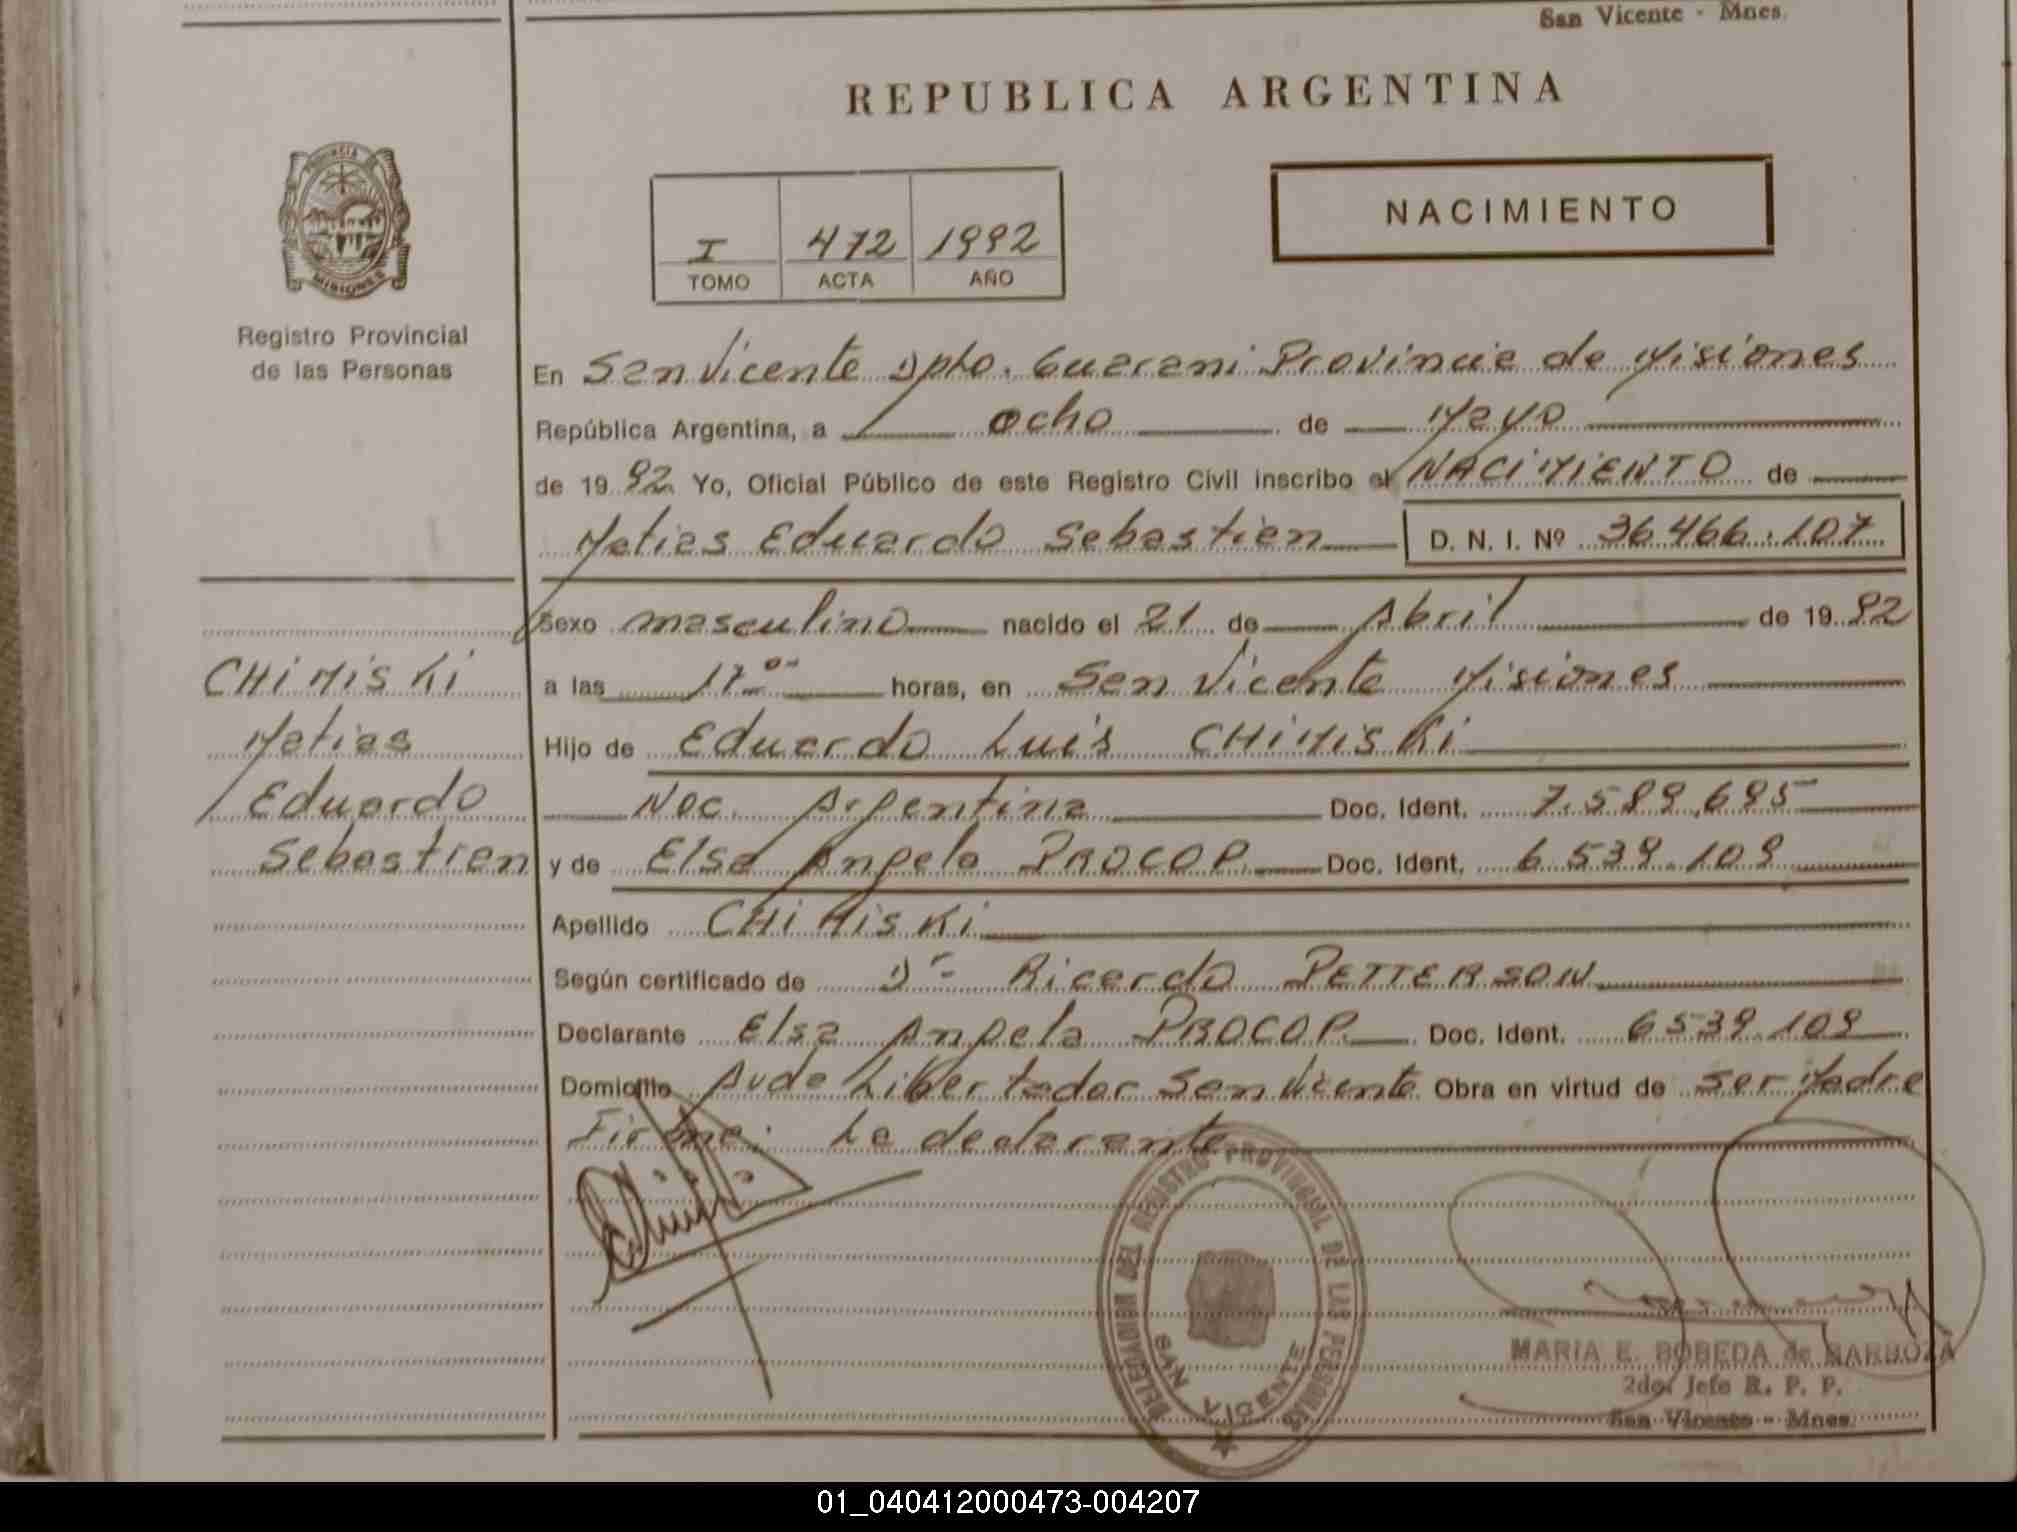 San Vicente - Mnes.
REPUBLICA ARGENTINA
PROVINCIA DE
MISIONES
Registro Provincial
de las Personas
I 472 1992
TOMO ACTA AÑO
NACIMIENTO
En San Vicente Dpto. Guarani Provincia de Misiones
República Argentina, a ocho de Mayo
de 1992 Yo, Oficial Público de este Registro Civil inscribo el NACIMIENTO de
Matias Eduardo Sebastian D. N. I. Nº 36.466.107
Sexo masculino nacido el 21 de Abril de 1992
CHIMISKI
Matias
Eduardo
Sebastian
a las 17 00 horas, en San Vicente Misiones
Hijo de Eduardo Luis CHIMISKI
Nac. Argentina Doc. Ident. 7.589.695
y de Elsa Angela PROCOP Doc. Ident. 6.539.109
Apellido CHIMISKI
Según certificado de Dr Ricardo PETTERSON
Declarante Elsa Angela PROCOP Doc. Ident. 6539.109
Domicilio Avda Libertador San Vicente Obra en virtud de ser Madre
Firma: La declarante
DELEGACION DEL REGISTRO PROVINCIAL DE LAS PERSONAS
SAN VICENTE
MARIA E. BOBEDA de BARBOZA
2do. Jefe R. P. P.
San Vicente - Mnes.
01_040412000473-004207